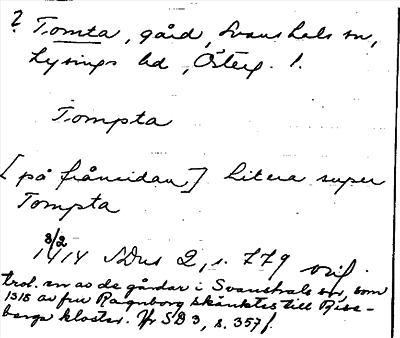 ? Tomta, gård, Svanshals sn,
Lysings hd, Österg. l.
Tompta
[på frånsidan] litera super
Tompta
3/2
1414 SDns 2, s. 779 orig.
trol. en av de gårdar i Svanshals sn, som
1315 av fru Ragnborg skänktes till Rise-
berga kloster. Jfr SD 3, s. 357 f.